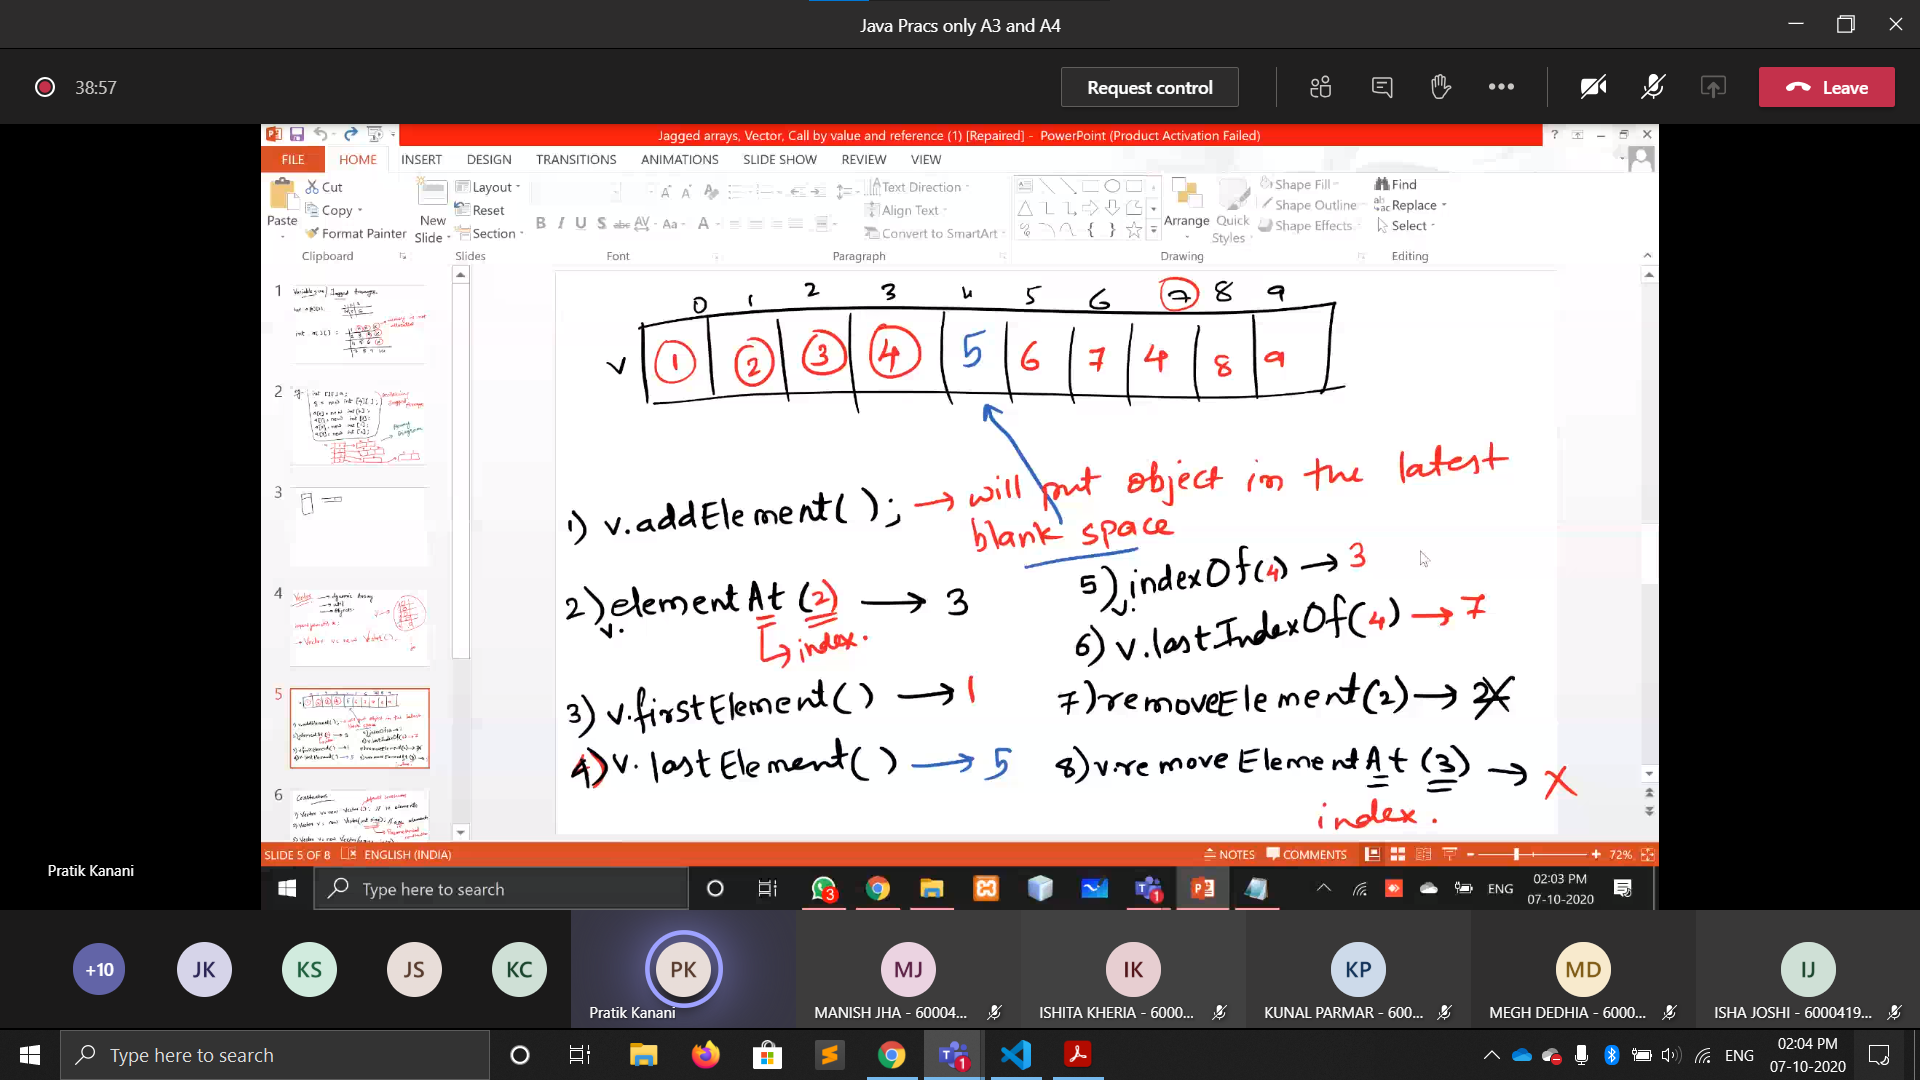 Java Pracs only A3 and A4
38:57
Request control
Leave
Jagged arrays, Vector, Call by value and reference (1) [Repaired] - PowerPoint (Product Activation Failed)
FILE HOME INSERT DESIGN TRANSITIONS ANIMATIONS SLIDE SHOW REVIEW VIEW
Paste
Cut
Copy
Format Painter
Clipboard
New Slide
Layout
Reset
Section
Slides
B I U S abc AV Aa A
Font
Text Direction
Align Text
Convert to SmartArt
Paragraph
Arrange
Quick Styles
Shape Fill
Shape Outline
Shape Effects
Drawing
Find
Replace
Select
Editing
1
2
3
4
5
6
0 1 2 3 4 5 6 7 8 9
v 1 2 3 4 5 6 7 4 8 9
1) v.addElement(); → will put object in the latest
blank space
2) v.elementAt (2) → 3
↳ index.
3) v.firstElement() → 1
4) v.lastElement() → 5
5) v.indexOf(4) → 3
6) v.lastIndexOf(4) → 7
7) removeElement(2) → 2
8) v.removeElementAt (3) → X
index.
SLIDE 5 OF 8 ENGLISH (INDIA) NOTES COMMENTS 72%
Pratik Kanani
Type here to search
3
1
ENG
02:03 PM
07-10-2020
+10 JK KS JS KC PK MJ IK KP MD IJ
Pratik Kanani MANISH JHA - 60004... ISHITA KHERIA - 6000... KUNAL PARMAR - 600... MEGH DEDHIA - 6000... ISHA JOSHI - 6000419...
Type here to search
1
ENG
02:04 PM
07-10-2020